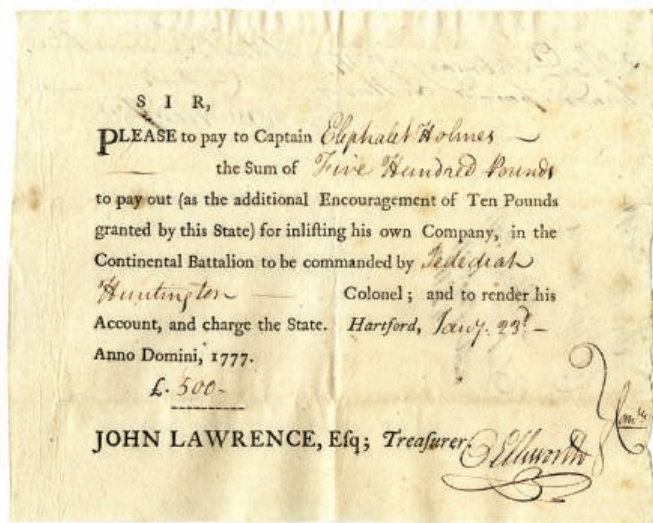 SIR,
PLEASE to pay to Captain Elephalet Holmes —
— the Sum of Five Hundred Pounds
to pay out (as the additional Encouragement of Ten Pounds
granted by this State) for inliſting his own Company, in the
Continental Battalion to be commanded by Jedediah
Huntington — Colonel; and to render his
Account, and charge the State. Hartford, Jany. 23d. —
Anno Domini, 1777.
£. 500-
JOHN LAWRENCE, Eſq; Treaſurer
O Ellsworth